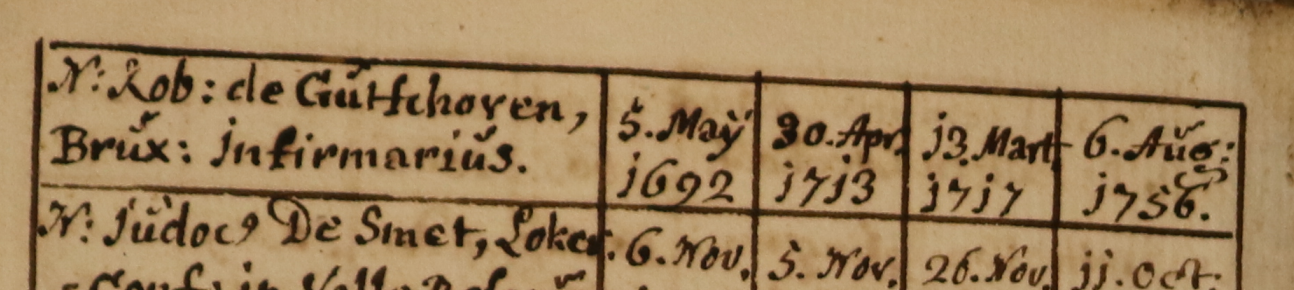 N: Rob: de Gŭtschoven,
Brŭx: infirmariŭs.
5. Maÿ
1692
30. Apr.
1713
13. Mart
1717
6. Aŭg:
1756.
N: Jŭdoc9 De Smet, Loker:
6. Nov.
5. Nov.
26. Nov.
11. Oct: